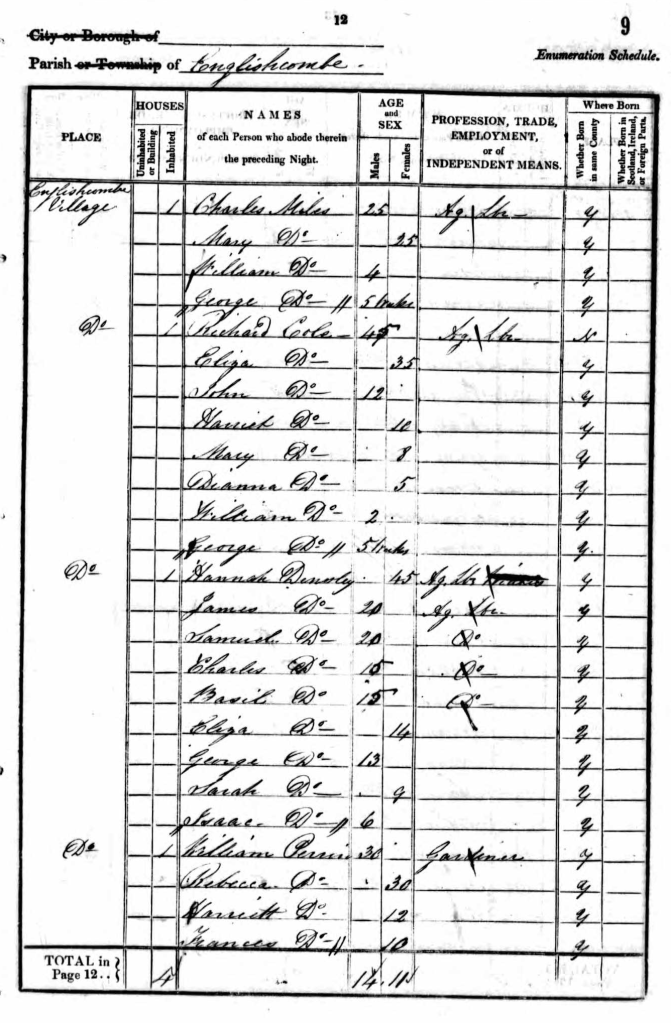 12
9
City or Borough of
Parish or Township of Englishcombe.
Enumeration Schedule.
PLACE
HOUSES
Uninhabited or Building
Inhabited
NAMES of each Person who abode therein the preceding Night.
AGE and SEX
Males
Females
PROFESSION, TRADE, EMPLOYMENT, or of INDEPENDENT MEANS.
Where Born
Whether Born in same County
Whether Born in Scotland, Ireland, or Foreign Parts.
Englishcombe Village 1 Charles Miles 25 Ag Lbr y
Mary Do 25 y
William Do 4 y
George Do 5 weeks y
Do 1 Richard Cole 45 Ag. Lbr N
Eliza Do 35 y
John Do 12 y
Harriet Do 10 y
Mary Do 8 y
Dianna Do 5 y
William Do 2 y
George Do 5 weeks y
Do 1 Hannah 45 Ag. Lbr y
James Do 20 Ag. Lbr y
Samuel Do 20 Do y
Charles Do 15 Do y
Basil Do 15 Do y
Eliza Do 14 y
George Do 13 y
Sarah Do 9 y
Isaac Do 6 y
Do 1 William Perrin 30 Gardiner y
Rebecca Do 30 y
Harriett Do 12 y
Frances Do 10 y
TOTAL in Page 12.. 4 14 11